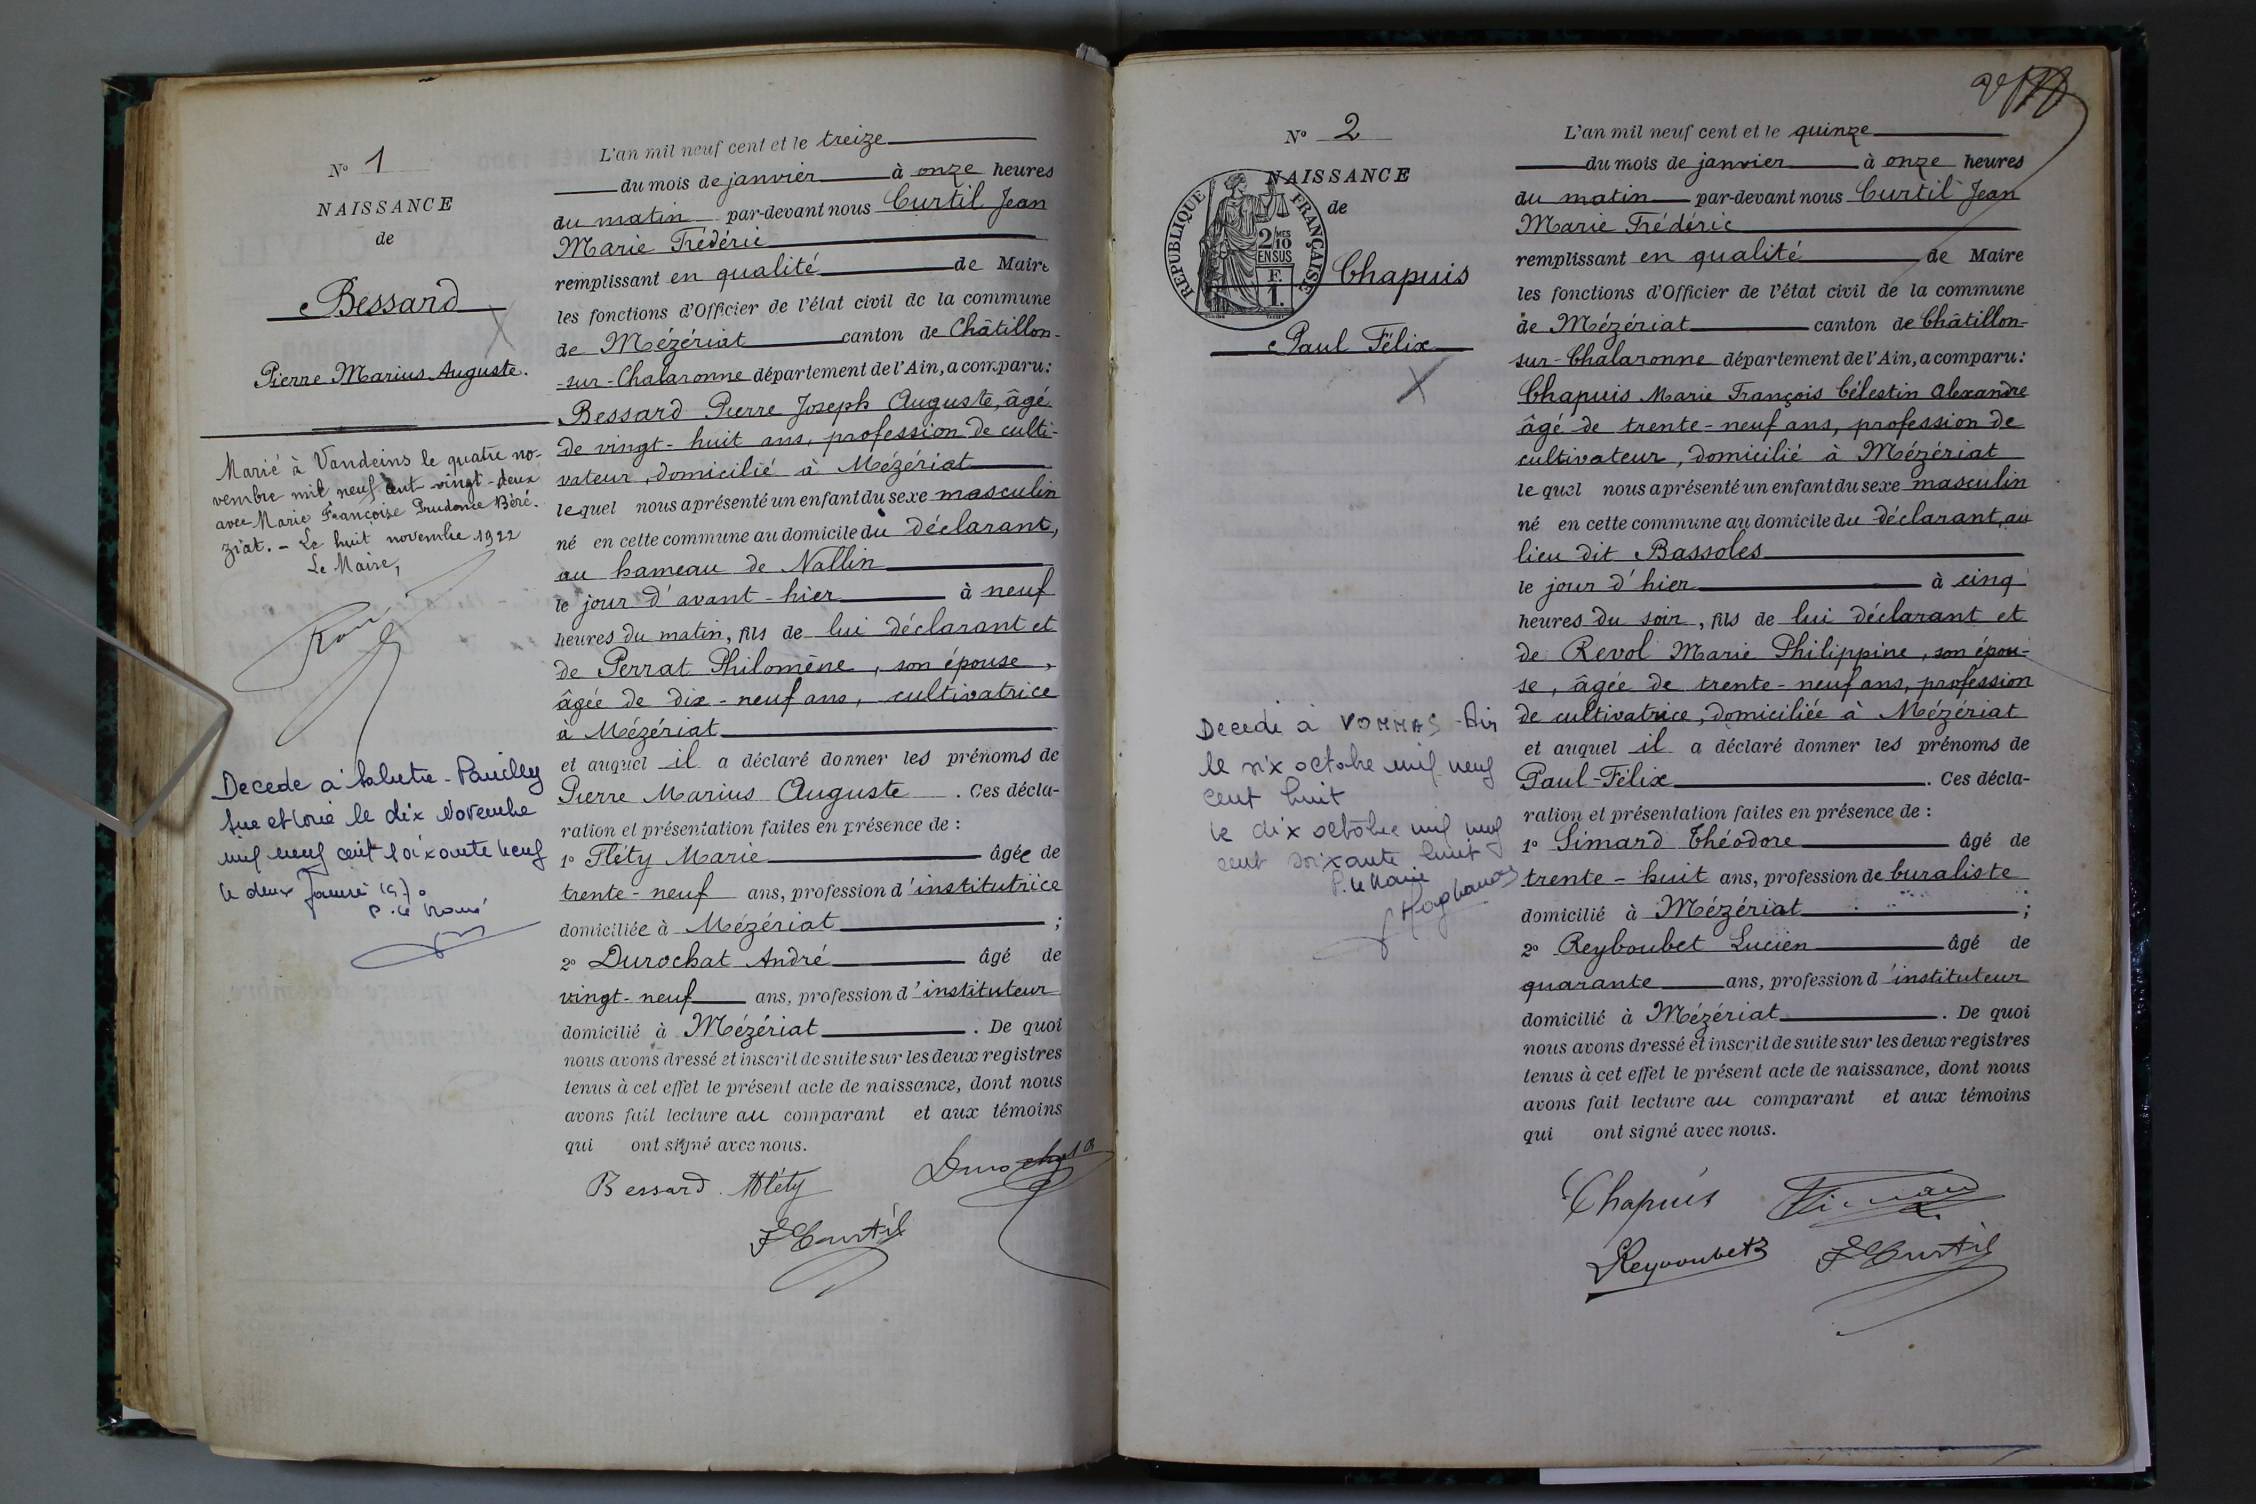 N° 1
NAISSANCE
de
Bessard
Pierre Marius Auguste.
Marié à Vandeins le quatre no-
vembre mil neuf cent vingt-deux
avec Marie Françoise Prudence Béré-
ziat. - Le huit novembre 1922
Le Maire,
Décédé à Solutré-Pouilly
Saône et Loire le dix Novembre
mil neuf cent soixante neuf
le deux Janvier 1970
P. le Maire
L'an mil neuf cent et le treize
du mois de janvier à onze heures
du matin par-devant nous Curtil Jean
Marie Frédéric
remplissant en qualité de Maire
les fonctions d'Officier de l'état civil de la commune
de Mézériat canton de Châtillon-
-sur-Chalaronne département de l'Ain, a comparu:
Bessard Pierre Joseph Auguste, âgé
de vingt-huit ans, profession de culti-
vateur, domicilié à Mézériat
lequel nous a présenté un enfant du sexe masculin
né en cette commune au domicile du déclarant,
au hameau de Nallin
le jour d'avant-hier à neuf
heures du matin, fils de lui déclarant et
de Perrat Philomène, son épouse,
âgée de dix-neuf ans, cultivatrice
à Mézériat
et auquel il a déclaré donner les prénoms de
Pierre Marius Auguste. Ces décla-
ration et présentation faites en présence de :
1° Fléty Marie âgée de
trente-neuf ans, profession d'institutrice
domiciliée à Mézériat ;
2° Durochat André âgé de
vingt-neuf ans, profession d'instituteur
domicilié à Mézériat. De quoi
nous avons dressé et inscrit de suite sur les deux registres
tenus à cet effet le présent acte de naissance, dont nous
avons fait lecture au comparant et aux témoins
qui ont signé avec nous.
Bessard. Mléty Durochat
F Curtil
N° 2
NAISSANCE
de
RÉPUBLIQUE FRANÇAISE
2/10 MES
EN SUS
F.
1.
Chapuis
Paul Félix
Décédé à VONNAS - Ain
le six octobre mil neuf
cent huit
le dix octobre mil neuf
cent soixante huit
P. le Maire
L'an mil neuf cent et le quinze
du mois de janvier à onze heures
du matin par-devant nous Curtil Jean
Marie Frédéric
remplissant en qualité de Maire
les fonctions d'Officier de l'état civil de la commune
de Mézériat canton de Châtillon-
sur-Chalaronne département de l'Ain, a comparu:
Chapuis Marie François Célestin Alexandre
âgé de trente-neuf ans, profession de
cultivateur, domicilié à Mézériat
lequel nous a présenté un enfant du sexe masculin
né en cette commune au domicile du déclarant, au
lieu dit Bassoles
le jour d'hier à cinq
heures du soir, fils de lui déclarant et
de Revol Marie Philippine, son épou-
se, âgée de trente-neuf ans, profession
de cultivatrice, domiciliée à Mézériat
et auquel il a déclaré donner les prénoms de
Paul-Félix. Ces décla-
ration et présentation faites en présence de :
1° Simard Théodore âgé de
trente-huit ans, profession de buraliste
domicilié à Mézériat ;
2° Reyboubet Lucien âgé de
quarante ans, profession d'instituteur
domicilié à Mézériat. De quoi
nous avons dressé et inscrit de suite sur les deux registres
tenus à cet effet le présent acte de naissance, dont nous
avons fait lecture au comparant et aux témoins
qui ont signé avec nous.
Chapuis Simard
Reyboubet F Curtil